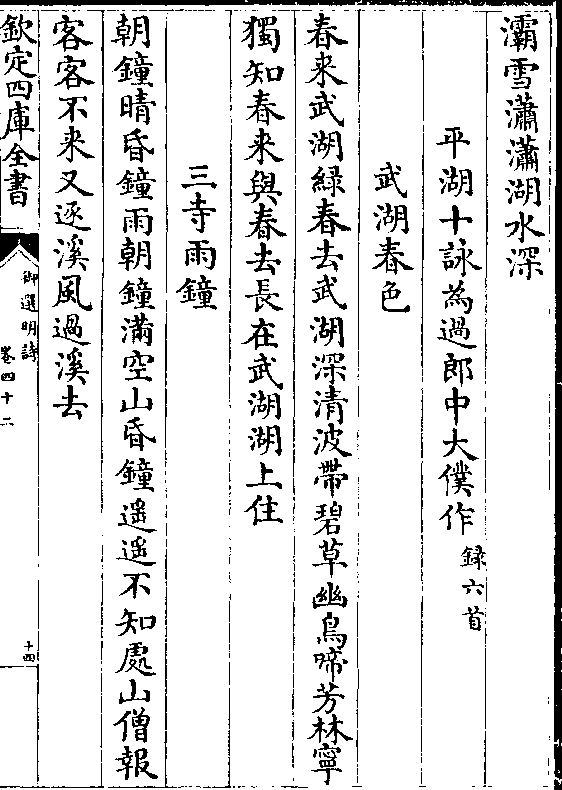 灞雪瀟瀟湖水深
平湖十詠為過郎中大僕作錄六首
武湖春色
春来武湖綠春去武湖深清波帶碧草幽鳥啼芳林寧
獨知春来與春去長在武湖湖上住
三寺雨鐘
朝鐘晴昏鐘雨朝鐘滿空山昏鐘遥遥不知處山僧報
客客不来又逐溪風過溪去
欽定四庫全書
御選明詩
卷四十二
十四